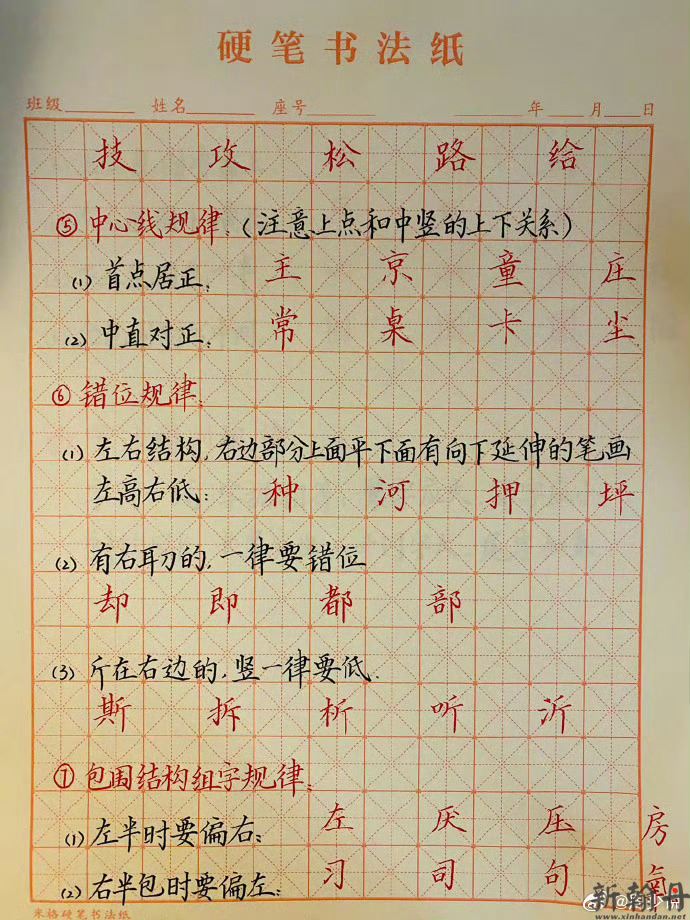 硬笔书法纸
班级 姓名 座号 年 月 日
技 攻 松 路 给
⑤中心线规律:(注意上点和中竖的上下关系)
(1)首点居正: 主 京 童 庄
(2)中直对正: 常 桌 卡 尘
⑥错位规律:
(1)左右结构,右边部分上面平下面有向下延伸的笔画
左高右低: 种 河 押 坪
(2)有右耳刀的,一律要错位
却 即 都 部
(3)斤在右边的,竖一律要低.
斯 拆 析 听 沂
⑦包围结构组字规律:
(1)左半时要偏右: 左 厌 压 房
(2)右半包时要偏左: 习 司 句 氣
米格硬笔书法纸
新翰丹
www.xinhandan.net